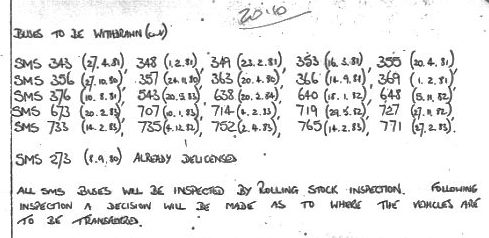 20.10
BUSES TO BE WITHDRAWN
SMS 343 (27.4.81), 348 (1.2.81), 349 (23.2.81), 353 (16.3.81), 355 (20.4.81)
SMS 356 (27.10.80), 357 (24.11.80), 363 (20.4.80), 366 (14.9.81), 369 (1.2.81)
SMS 376 (10.8.81), 543 (20.5.83), 638 (20.2.84), 640 (18.1.82), 648 (5.11.82)
SMS 673 (20.2.83), 707 (10.1.83), 714 (4.2.83), 719 (29.5.82), 727 (27.11.82)
SMS 733 (14.2.83), 735 (4.12.82), 752 (2.4.83), 765 (14.2.83), 771 (27.2.83).
SMS 273 (8.9.80) ALREADY DELICENSED
ALL SMS BUSES WILL BE INSPECTED BY ROLLING STOCK INSPECTION. FOLLOWING
INSPECTION A DECISION WILL BE MADE AS TO WHERE THE VEHICLES ARE
TO BE TRANSFERRED.